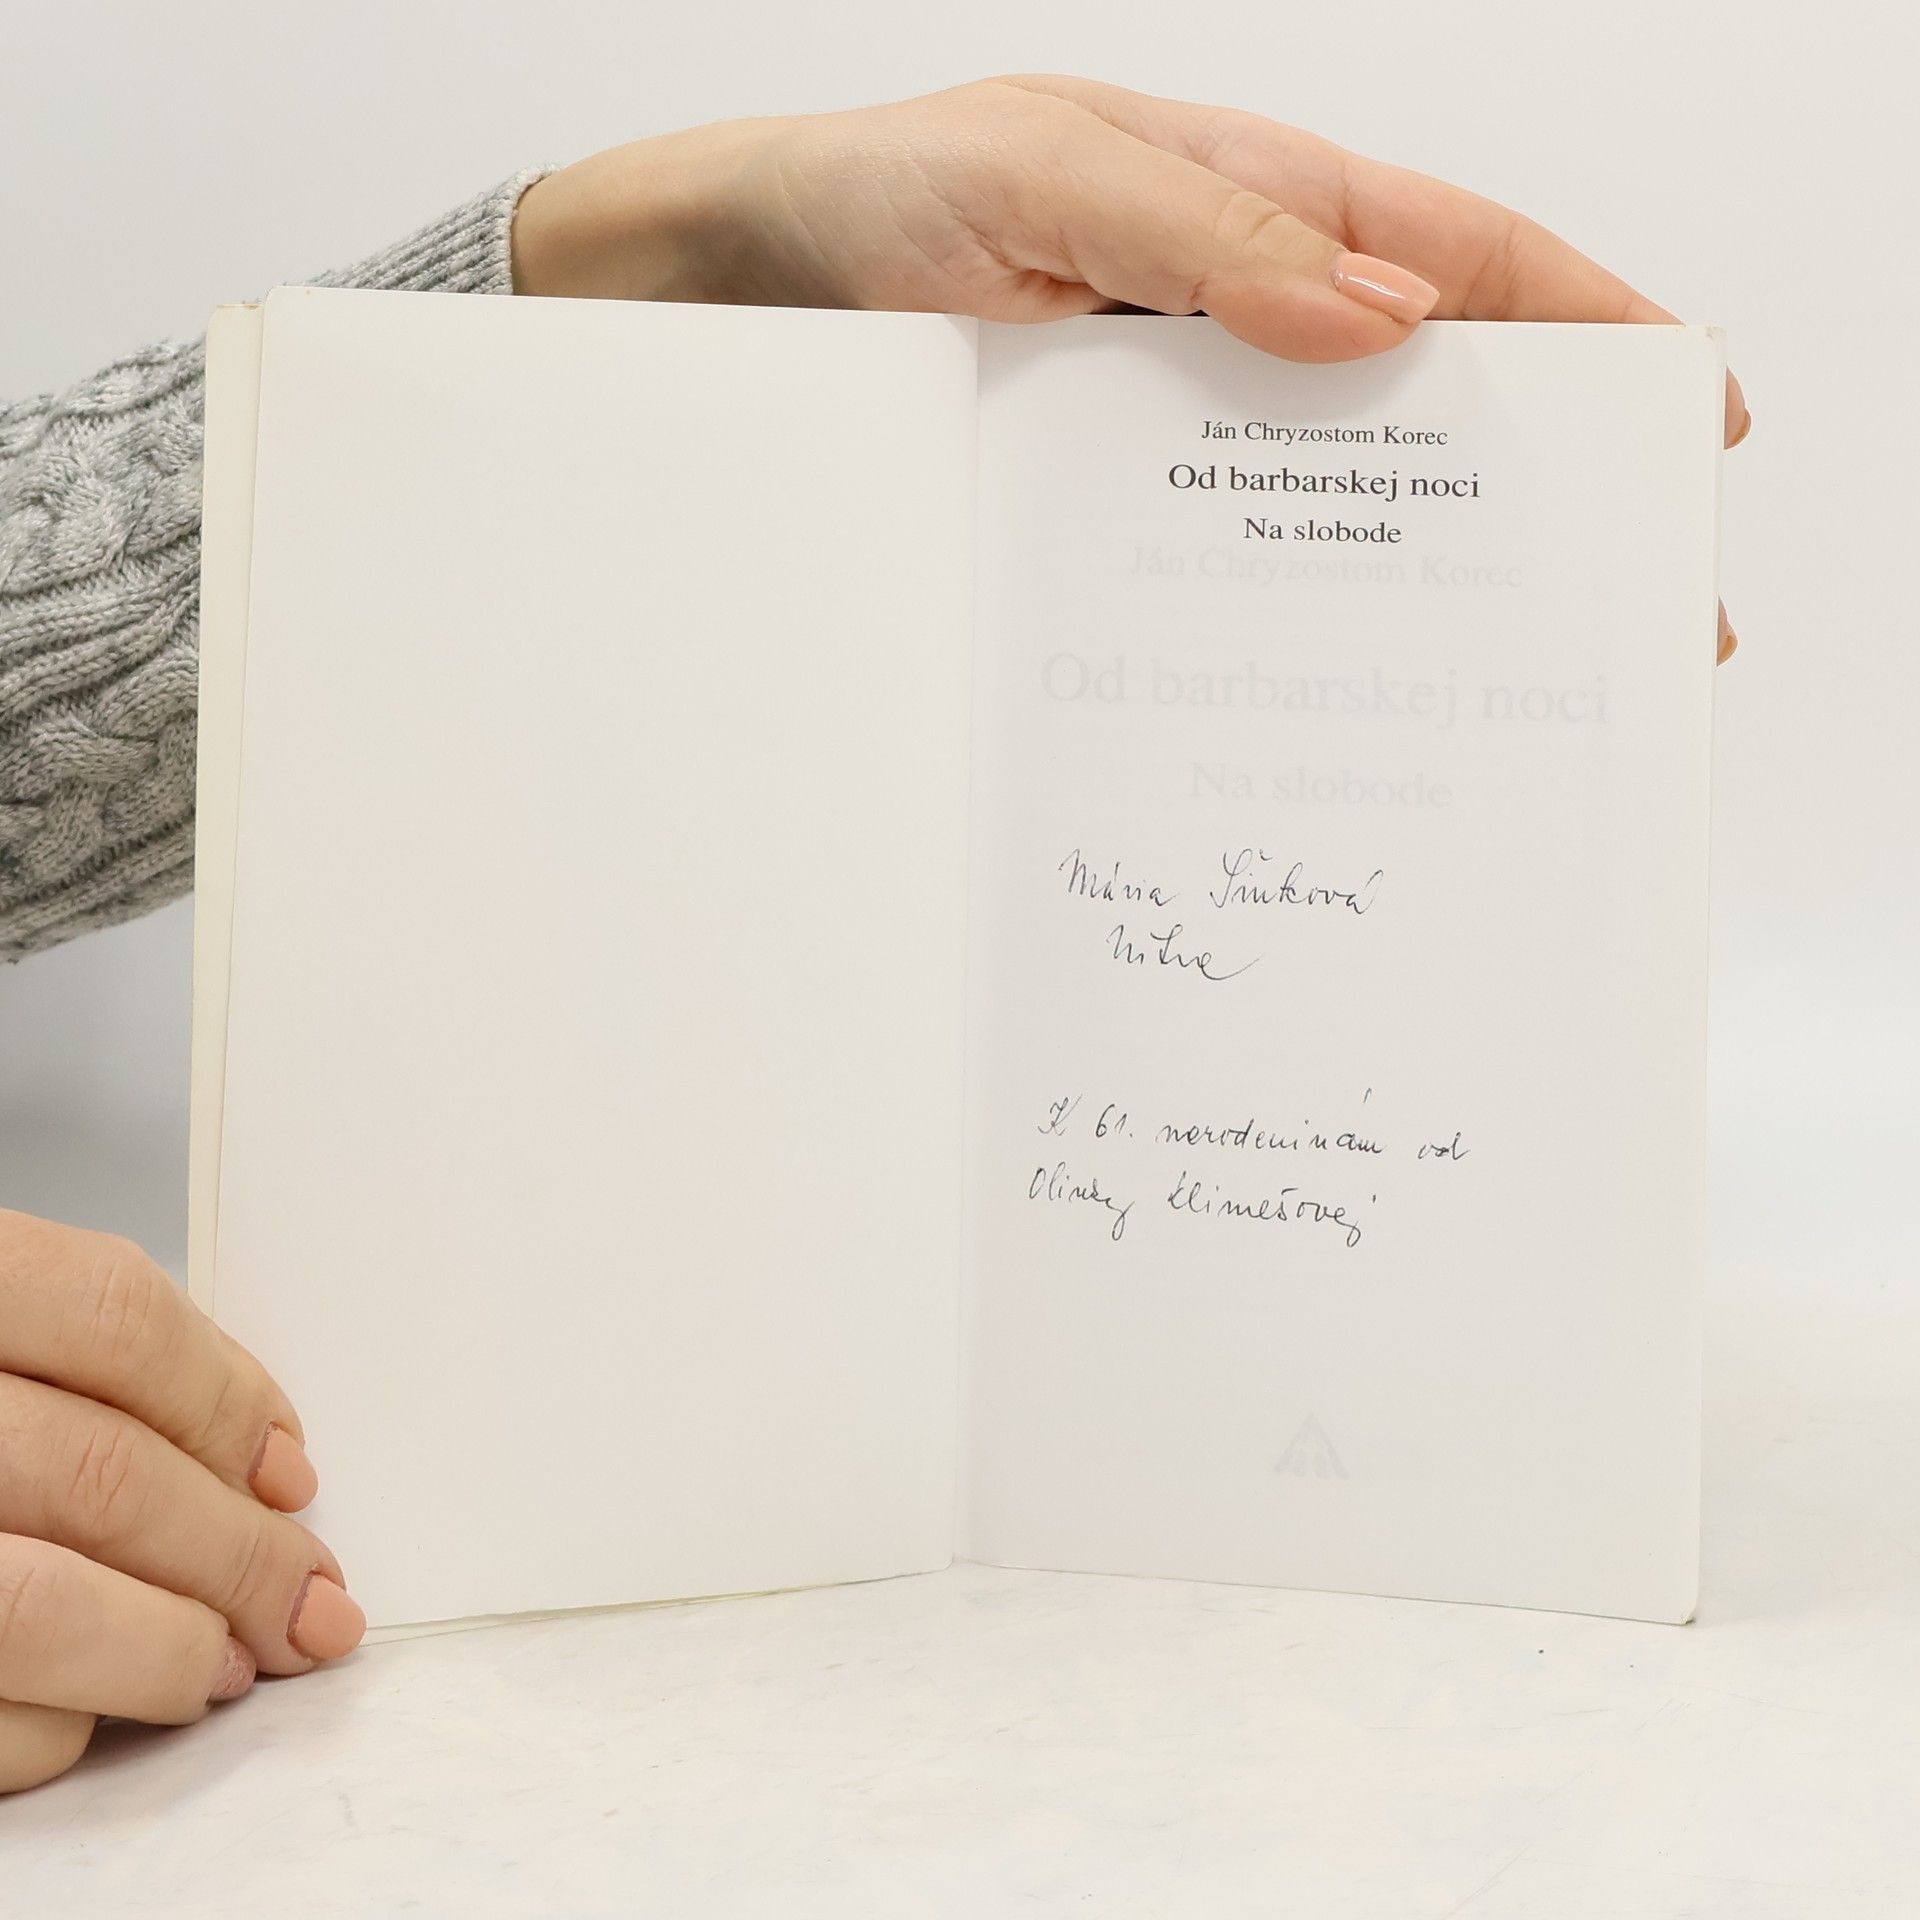 Ján Chryzostom Korec
Od barbarskej noci
Na slobode
Ján Chryzostom Korec
Od barbarskej noci
Na slobode
Mária
Nitra
K 61. narodeninám od
Olinky Klimešovej